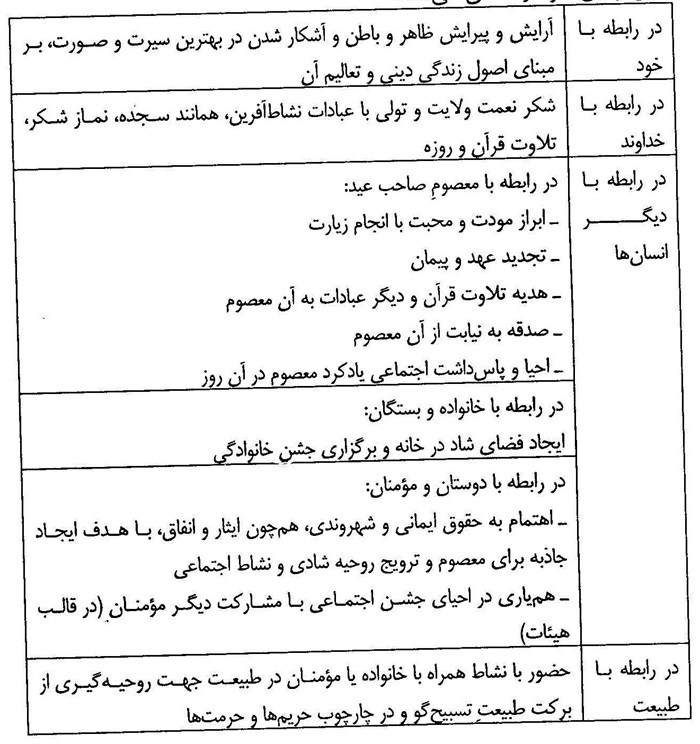 در رابطه با
خود
آرایش و پیرایش ظاهر و باطن و آشکار شدن در بهترین سیرت و صورت، بر
مبنای اصول زندگی دینی و تعالیم آن
در رابطه با
خداوند
شکر نعمت ولایت و تولی با عبادات نشاط‌آفرین، همانند سجده، نماز شکر،
تلاوت قرآن و روزه
در رابطه با
دیگر
انسان‌ها
در رابطه با معصوم صاحب عید:
ـ ابراز مودت و محبت با انجام زیارت
ـ تجدید عهد و پیمان
ـ هدیه تلاوت قرآن و دیگر عبادات به آن معصوم
ـ صدقه به نیابت از آن معصوم
ـ احیا و پاس‌داشت اجتماعی یادکرد معصوم در آن روز
در رابطه با خانواده و بستگان:
ایجاد فضای شاد در خانه و برگزاری جشن خانوادگی
در رابطه با دوستان و مؤمنان:
ـ اهتمام به حقوق ایمانی و شهروندی، هم‌چون ایثار و انفاق، با هدف ایجاد
جاذبه برای معصوم و ترویج روحیه شادی و نشاط اجتماعی
ـ هم‌یاری در احیای جشن اجتماعی با مشارکت دیگر مؤمنان (در قالب
هیئات)
در رابطه با
طبیعت
حضور با نشاط همراه با خانواده یا مؤمنان در طبیعت جهت روحیه‌گیری از
برکت طبیعتِ تسبیح‌گو و در چارچوب حریم‌ها و حرمت‌ها